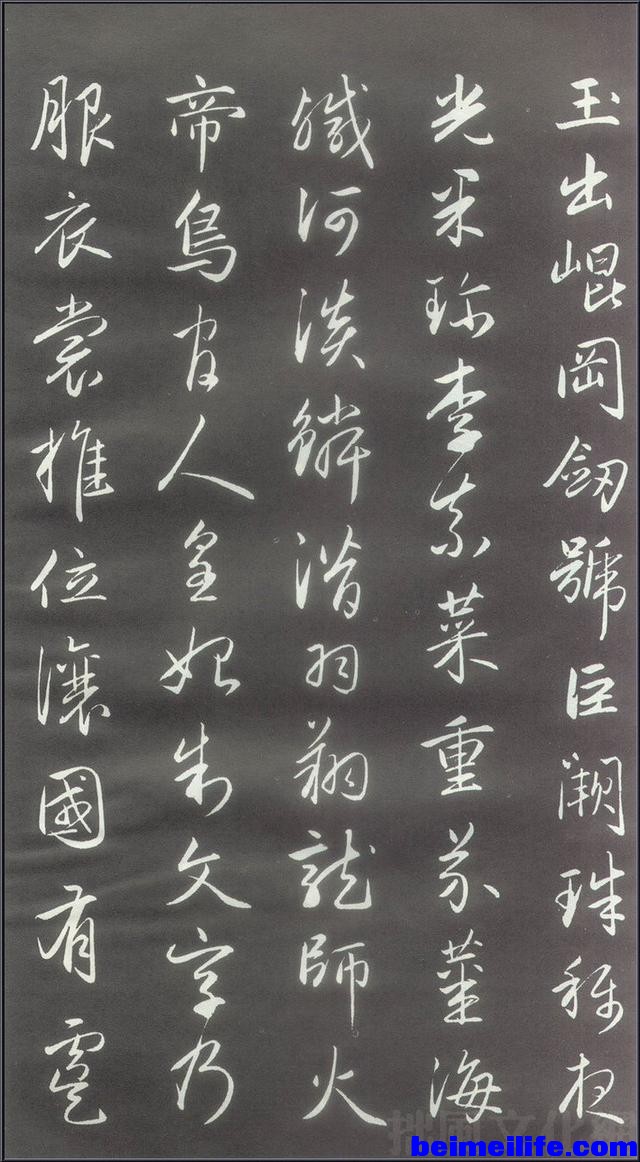 玉出崐岡劒號巨闕珠稱夜
光果珍李柰菜重芥薑海
鹹河淡鱗潛羽翔龍師火
帝鳥官人皇始制文字乃
服衣裳推位讓國有虞
拙風文化網
beimeilife.com